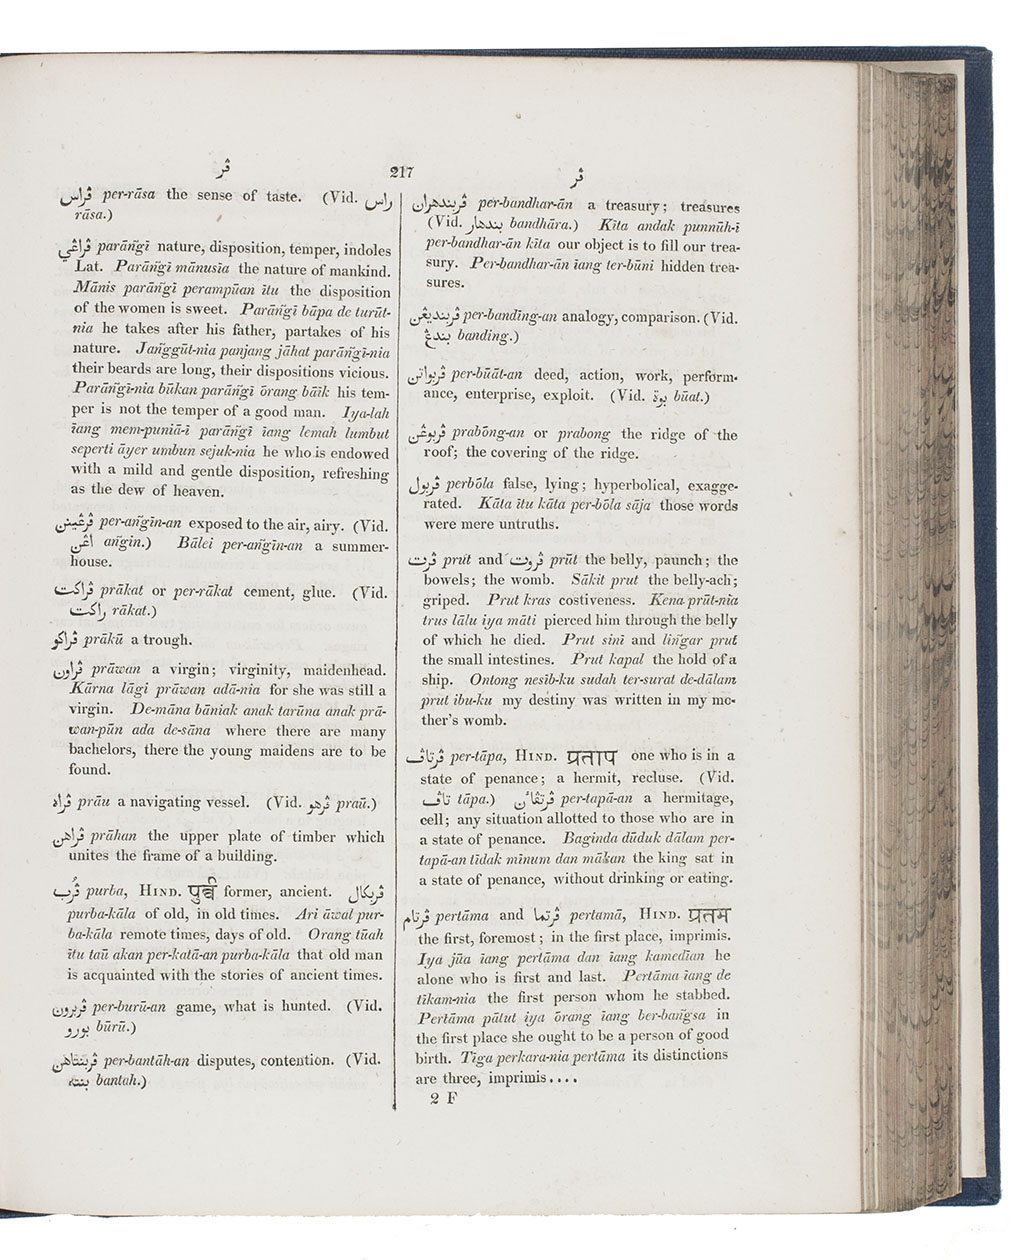 ڤر
217
ڤر
ڤراس per-rāsa the sense of taste. (Vid. راس
rāsa.)
ڤراڠي parāñgī nature, disposition, temper, indoles
Lat. Parāñgī mānusīa the nature of mankind.
Mānis parāñgī perampūan ītu the disposition
of the women is sweet. Parāñgī bāpa de turūt-
nia he takes after his father, partakes of his
nature. Jañggūt-nia panjang jāhat parāñgī-nia
their beards are long, their dispositions vicious.
Parāñgī-nia būkan parāñgī ōrang bāīk his tem-
per is not the temper of a good man. Iya-lah
īang mem-puniā-ī parāñgī īang lemah lumbut
seperti āyer umbun sejuk-nia he who is endowed
with a mild and gentle disposition, refreshing
as the dew of heaven.
ڤرڠينن per-añgīn-an exposed to the air, airy. (Vid.
اڠن añgin.) Bālei per-añgīn-an a summer-
house.
ڤراكت prākat or per-rākat cement, glue. (Vid.
راكت rākat.)
ڤراكو prākū a trough.
ڤراون prāwan a virgin; virginity, maidenhead.
Kārna lāgi prāwan adā-nia for she was still a
virgin. De-māna bāniak anak tarūna anak prā-
wan-pūn ada de-sāna where there are many
bachelors, there the young maidens are to be
found.
ڤراه prāu a navigating vessel. (Vid. ڤرهو praū.)
ڤراهن prāhan the upper plate of timber which
unites the frame of a building.
ڤرب purba, HIND. पुर्ब former, ancient. ڤربكال
purba-kāla of old, in old times. Ari āwal pur-
ba-kāla remote times, days of old. Orang tūah
ītu taū akan per-katā-an purba-kāla that old man
is acquainted with the stories of ancient times.
ڤربرون per-burū-an game, what is hunted. (Vid.
بورو būrū.)
ڤربنتاهن per-bantāh-an disputes, contention. (Vid.
بنته bantah.)
ڤربندهران per-bandhar-ān a treasury; treasures
(Vid. بندهار bandhāra.) Kīta andak punnūh-ī
per-bandhar-ān kīta our object is to fill our trea-
sury. Per-bandhar-ān īang ter-būni hidden trea-
sures.
ڤربنديڠن per-bandīng-an analogy, comparison. (Vid.
بندڠ banding.)
ڤربواتن per-būāt-an deed, action, work, perform-
ance, enterprise, exploit. (Vid. بوة būat.)
ڤربوڠن prabōng-an or prabong the ridge of the
roof; the covering of the ridge.
ڤربول perbōla false, lying; hyperbolical, exagge-
rated. Kāta ītu kāta per-bōla sāja those words
were mere untruths.
ڤرت prut and ڤروت prūt the belly, paunch; the
bowels; the womb. Sākit prut the belly-ach;
griped. Prut kras costiveness. Kena prūt-nia
trus lālu iya māti pierced him through the belly
of which he died. Prut sinī and liñgar prut
the small intestines. Prut kapal the hold of a
ship. Ontong nesīb-ku sudah ter-surat de-dālam
prut ibu-ku my destiny was written in my mo-
ther's womb.
ڤرتاڤ per-tāpa, HIND. प्रताप one who is in a
state of penance; a hermit, recluse. (Vid.
تاڤ tāpa.) ڤرتڤائن per-tapā-an a hermitage,
cell; any situation allotted to those who are in
a state of penance. Baginda dūduk dālam per-
tapā-an tīdak mīnum dan mākan the king sat in
a state of penance, without drinking or eating.
ڤرتام pertāma and ڤرتما pertamā, HIND. प्रतम
the first, foremost; in the first place, imprimis.
Iya jūa īang pertāma dan īang kamedīan he
alone who is first and last. Pertāma īang de
tīkam-nia the first person whom he stabbed.
Pertāma pātut iya ōrang īang ber-bañgsa in
the first place she ought to be a person of good
birth. Tīga perkara-nia pertāma its distinctions
are three, imprimis....
2 F